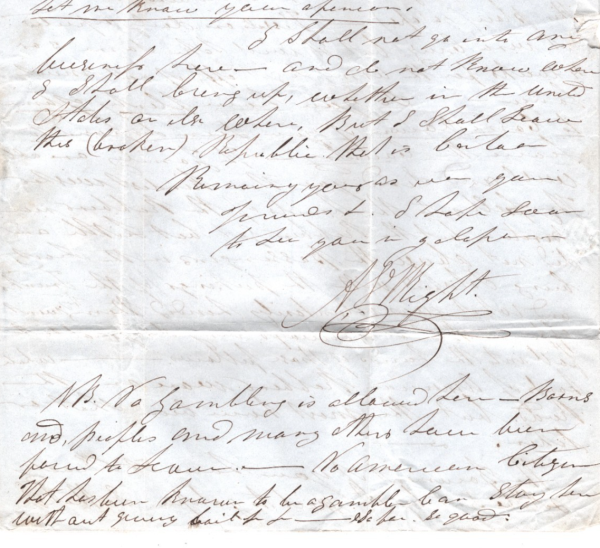 let me Know your opinion.
I Shall not go into any
business here and do not Know where
I Shall bring up, whether in the United
States or else where, But I Shall Leave
this (broken) Republic that is Certain
Remaing yours as ever your
friend &. I hope soon
to see you in
Wright.
NB. No gambling is allowed here — Barns
and, peoples and many others have been
forced to Leave. — No American Citizen
that has been Known to be a gambler Can Stay here
without giving bail & & — so far so good.